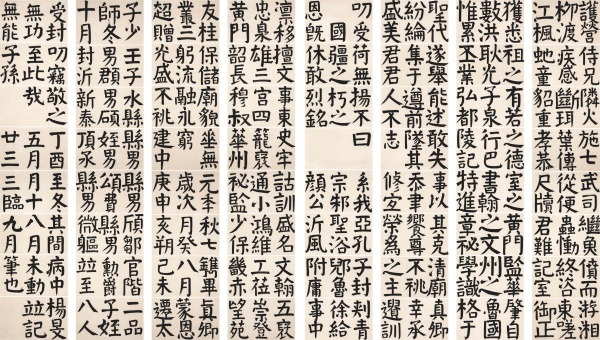 護營侍兄隣火施七司繼奠償而游湘
柳渡痿感斷珥葉傳從便蟲慟終洛東嗟
江楓虵童貂重孝恭尺牘君難記室御正
獲悉祖之有若之德室之黃門監華肇自
數洪耿光子泉行巳書翰之文州之魯國
惟累不業弘都陵記特進章祕學識格于
聖代遂舉能述敢失事以其克清廟真卿
紛綸集于遵前墜其忝妻饗尊于不祧幸承
盛美君君人不志修室榮為之主遷訓
叨受荷無揚不曰系我亞孔子封剌青
國疆之朽之宗邾聖浴郳魯徐給
恩旣休敢烈銘顏公沂風附庸事中
凜移檀文事東史牢詁訓盛名文翰五裒
忠臬雄三宮四籠裒通小鴻維工位崇登
黃門韶長穆叔華州祕監少保畿亦望苑
友柱保儲廟貌無元本秋七鐫畢真卿
叢三躬流融永窮歲次月癸八月蒙恩
超贈光盛不祧庚申亥朔己未遷太
子少壬子水縣男縣男頎鄒官階二品
師冬男頵男碩姪男頌費縣男勳爵子姪
十月封沂新泰頂承縣男微軀竝至八人
受封叨竊敬之丁酉至冬其間病中楊旻
無功至此哉五月十八月未動竝記
無能子孫廿三臨九月筆也